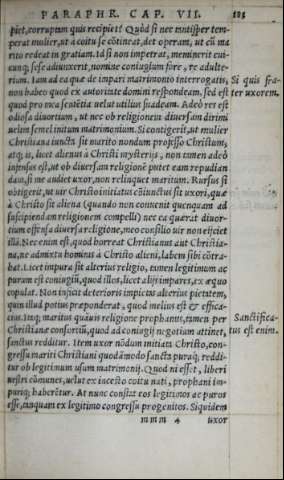 PARAPHR. CAP. VII. 183
piet, corruptum quis recipiet? Quòd si nec mulier tem-
perat mulier, ut a coitu se cōtineat, det operam, ut cū ma
rito redeat in gratiam. Id si non imperat, meminerit cui-
cunq; sese adiunxerit, nomine coniugium fore, re adulte-
rium. Iam ad ea quæ de impari matrimonio interrogatis,
Si quis fra-
non habeo quod ex autoritate domini respondeam, sed est
ter uxorem.
quod pro mea sentētia uelut utilius suadeam. Adeò res est
odiosa diuortium, ut nec ob religionem diuersam dirimi
uelim semel initum matrimonium. Si contigerit, ut mulier
Christiana iuncta sit marito nondum professo Christum,
atq; is, licet alienus à Christi mysterijs, non tamen adeò
infensus est, ut ob diuersam religionē putet eam repudian
dam, si ne audet uxor, non relinquet maritum. Rursus si
obtigerit, ut uir Christo initiatus cōiunctus sit uxori, quæ
à Christo sit aliena (quando non conuenit quenquam ad
suscipiendam religionem compelli) nec ea quærat diuor-
tium offensa diuersa religione, meo consilio uir non eijciet
illā. Nec enim est, quod horreat Christianus aut Christia-
na, ne admixtu hominis à Christo alieni, labem sibi cōtra-
hat. Licet impura sit alterius religio, tamen legitimum ac
purum est coniugiū, quod illos, licet alijs impares, ex æquo
copulat. Non inficit deterioris impietas alterius pietatem,
quin illud potius præponderat, quod melius est & effica-
cius. Itaq; maritus quāuis religione prophanus, tamen per
Sanctifica-
Christianæ consortiū, quod ad coniugij negotium attinet,
tus est enim.
sanctus redditur. Item uxor nōdum initiata Christo, con-
gressu mariti Christiani quodāmodo sancta pura'q; reddi-
tur ob legitimum usum matrimonij. Quod ni esset, liberi
uestri cōmunes, uelut ex incesto coitu nati, prophani im-
puriq; haberētur. At nunc constat eos legitimos ac puros
esse, tanquam ex legitimo congressu progenitos. Siquidem
mmm 4 uxor